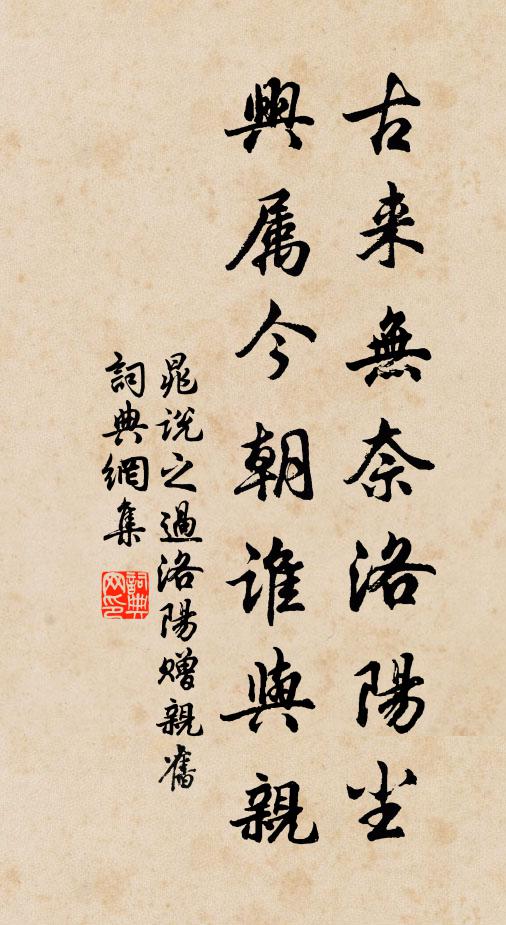 古来無奈洛陽尘
興属今朝誰與親
晁説之過洛陽赠親舊
詞典網集
詞典网印